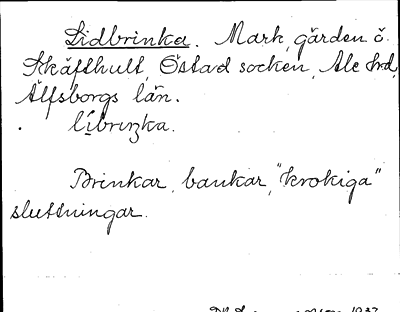 Lidbrinka. Mark, gården ö.
Skäfthult, Östad socken, Ale hrd,
Älfsborgs län.
líbriŋka.
Brinkar, bankar, "krokiga"
sluttningar.
1937